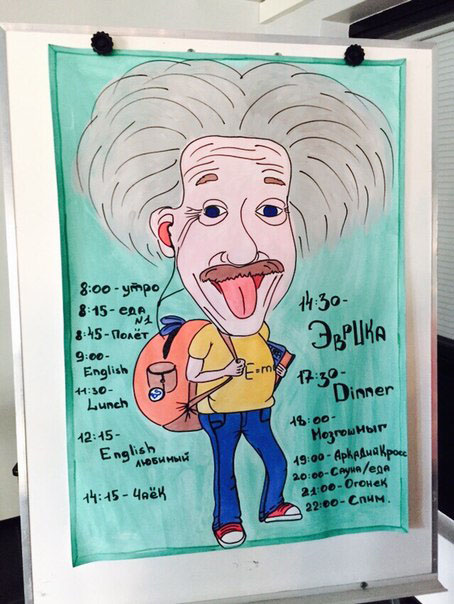 8:00-утро
8:15-еда
№1
8:45-Полёт
9:00-
English
11:30-
Lunch
12:15-
English
любимый
14:15-Чаёк
E=m
14:30-
ЭВРИКА
17:30-
Dinner
18:00-
Мозгошныг
19:00-Аркадий Кросс
20:00-Сауна/еда
21:00-Огонек
22:00-Спим.